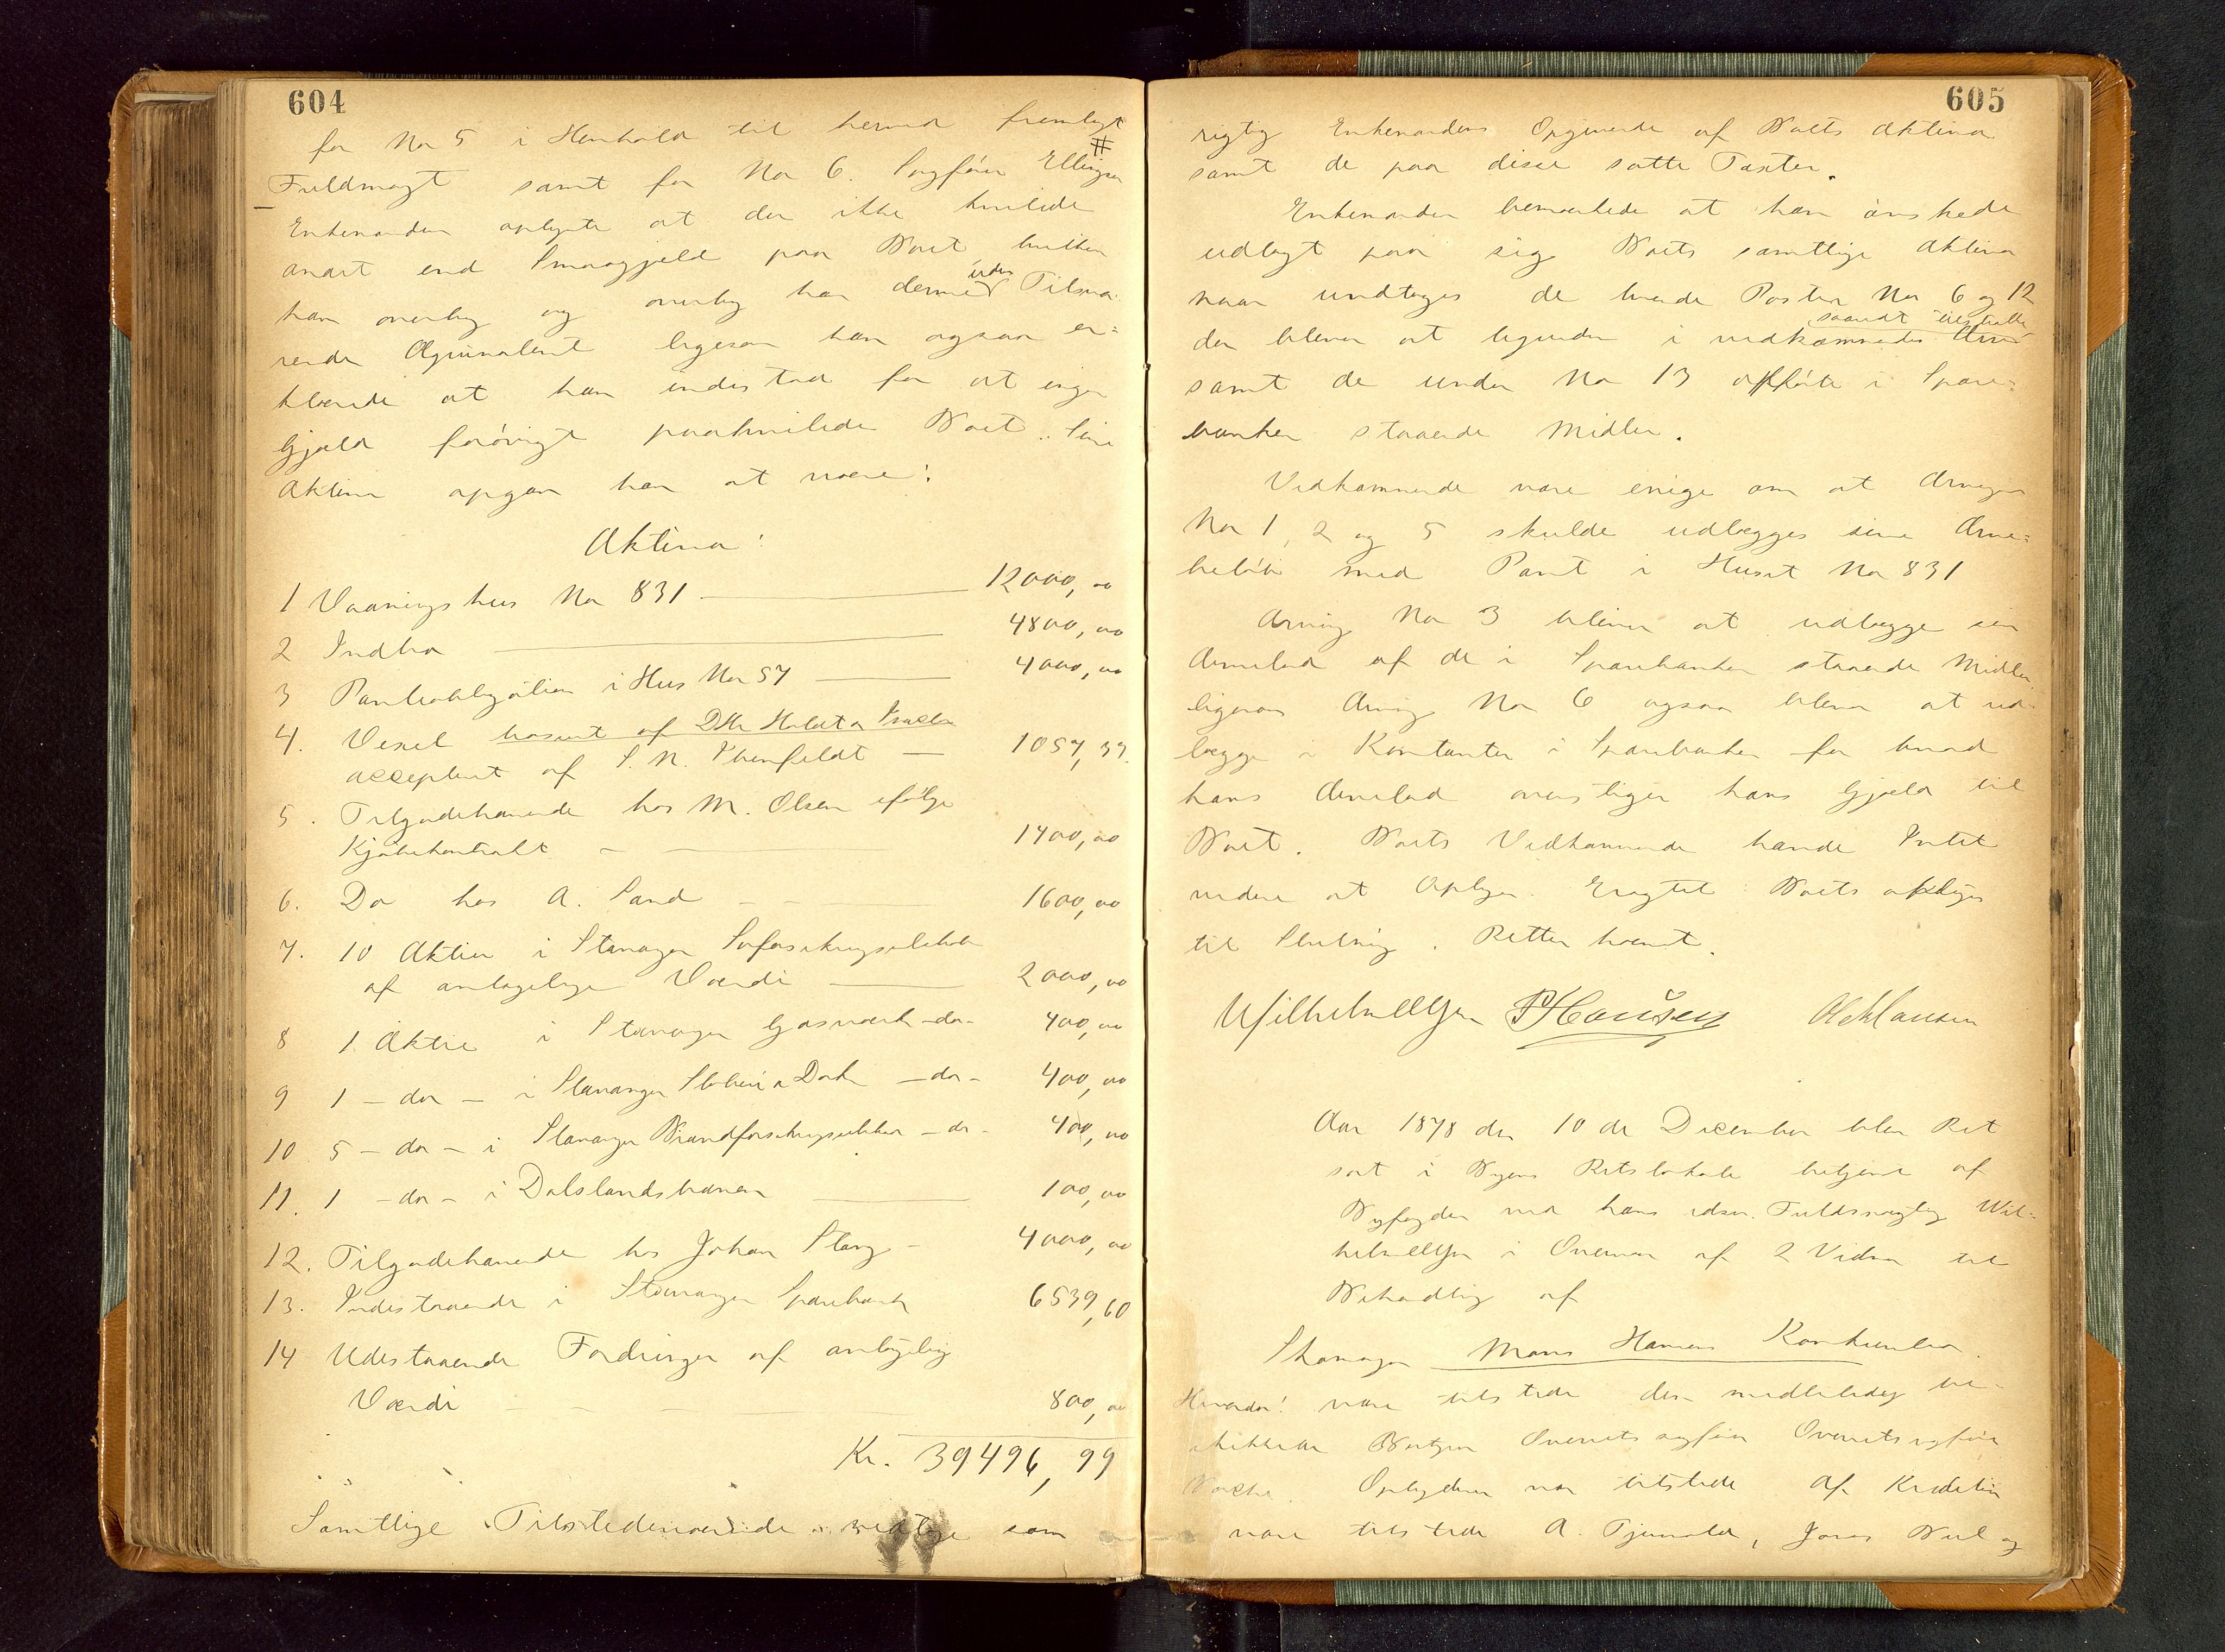 604
for No 5 i Henhold til herved fremlagt
Fuldmagt samt for No 6. Sagfører Ellingsen
Enkemanden oplyste at der ikke hvilede
andet end Smaagjæld paa Boet hvilken
han overtog og overtog han denne uden Tilsva-
rende Æquivalent ligesom han ogsaa er=
klærede at han indestod for at ingen
Gjæld forøvrigt paahvilede Boet. Sine
Aktiva opgav han at være:
Aktiva:
1 Vaaningshus No 831 12000,00
2 Indbo 4800,00
3 Panteobligation i Hus No 57 4000,00
4. Vexel
accepteret af S. N. 1057,39.
5. Tilgodehavende hos M. Olsen ifølge
Kjøbekontrakt 1400,00
6. Do hos A. Sand 1600,00
7. 10 Aktier i Stavanger Søforsikringsselskab
af antagelige Værdi 2000,00
8 1 Aktie i Stavanger Gasværk -do- 400,00
9 1 -do- i Stavanger Støberi & Dok -do- 400,00
10 5 -do- i Stavanger Brandforsikringsselskab -do- 400,00
11. 1 -do- i Dalslandsbanen 100,00
12. Tilgodehavende hos Johan Stang 4000,00
13. Indestaaende i Stavanger Sparebank 6539,60
14 Udestaaende Fordringer af antagelig
Værdi 800,00
Kr. 39496,99
Samtlige Tilstedeværende vedtoge som
605
rigtig Enkemandens Opgivende af Boets Aktiva
samt de paa disse satte Taxter.
Enkemanden bemærkede at han ønskede
udlagt paa sig Boets samtlige Aktiva
naar undtages de tvende Poster No 6 og 12
saavidt tilstrække
der bliver at lignende i vedkommendes Arv
samt de under No 13 opførte i Spare=
banken staaende Midler.
Vedkommende vare enige om at Arvinger
No 1, 2 og 5 skulde udlægges sine Arve=
beløb med Pant i Huset No 831
Arving No 3 bliver at udlægge sin
Arvelod af de i Sparebanken staaende Midler
ligesom Arving No 6 ogsaa bliver at ud-
lægge i Kontanter i Sparebanken for hvad
hans Arvelod overstiger hans Gjæld til
Boet. Boets Vedkommende havde Intet
videre at Oplyse. Eragtet: Boets optages
til Slutning. Retten hævet.
Wilhelm Ellgen PHansen OleHansen
Aar 1878 den 10de December blev Ret
sat i Byens Retslokale betjent af
Byfogden ved hans edsv. Fuldmægtig Wil=
helm Ellgen i Overvær af 2 Vidner til
Behandling af
Mons Hansens Konkursbo.
Hvorda! vare tilstede den midlertidig be-
skikkede Bestyrer Overretssagfører Overretssagfører
Opbyderen var tilstede Af Kreditorer
vare tilstede A. Tjensvold, Jonas Buel og